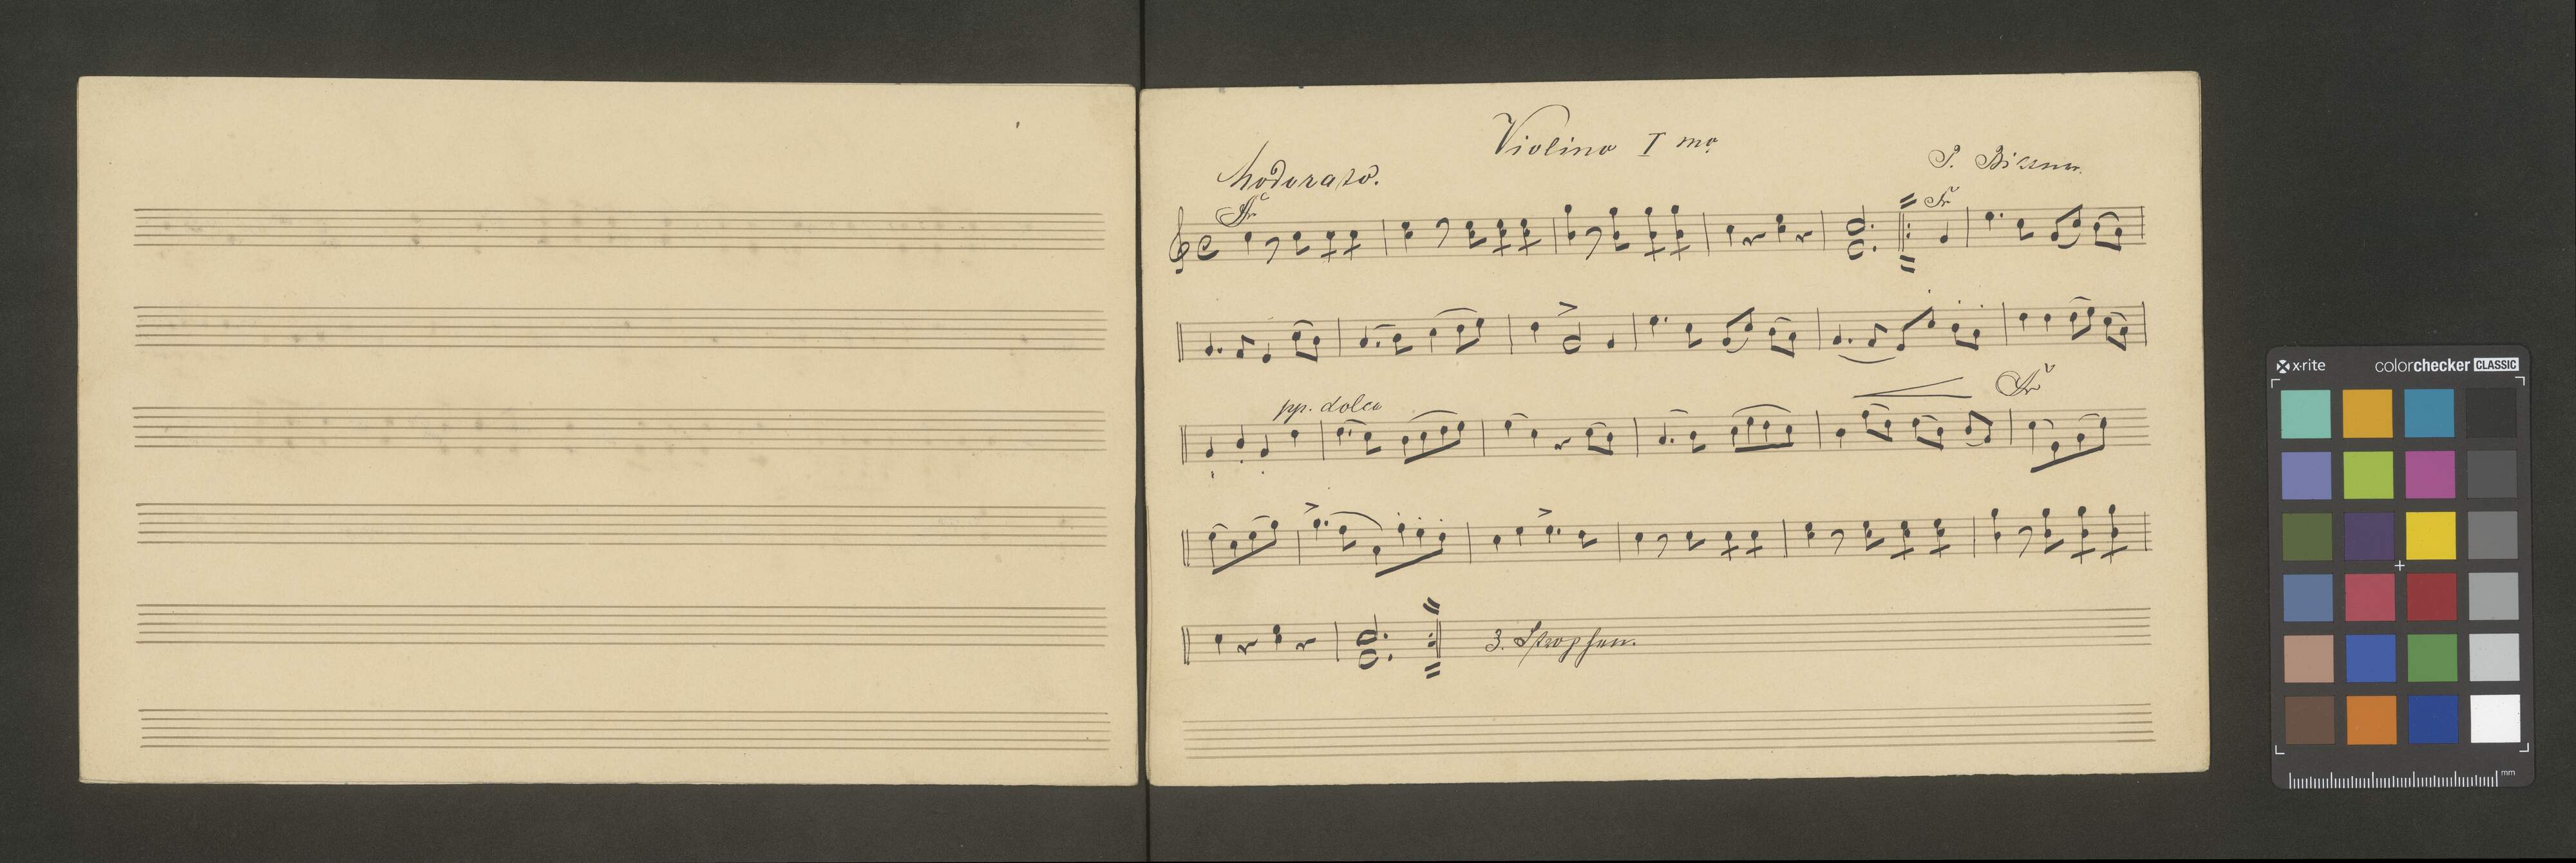 Violino I mo
Moderato.
P.
pp. dolce
3. Strophen.
x-rite colorchecker CLASSIC
mm